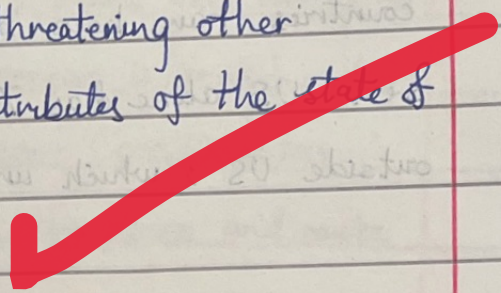 hreatening other
tributes of the state of